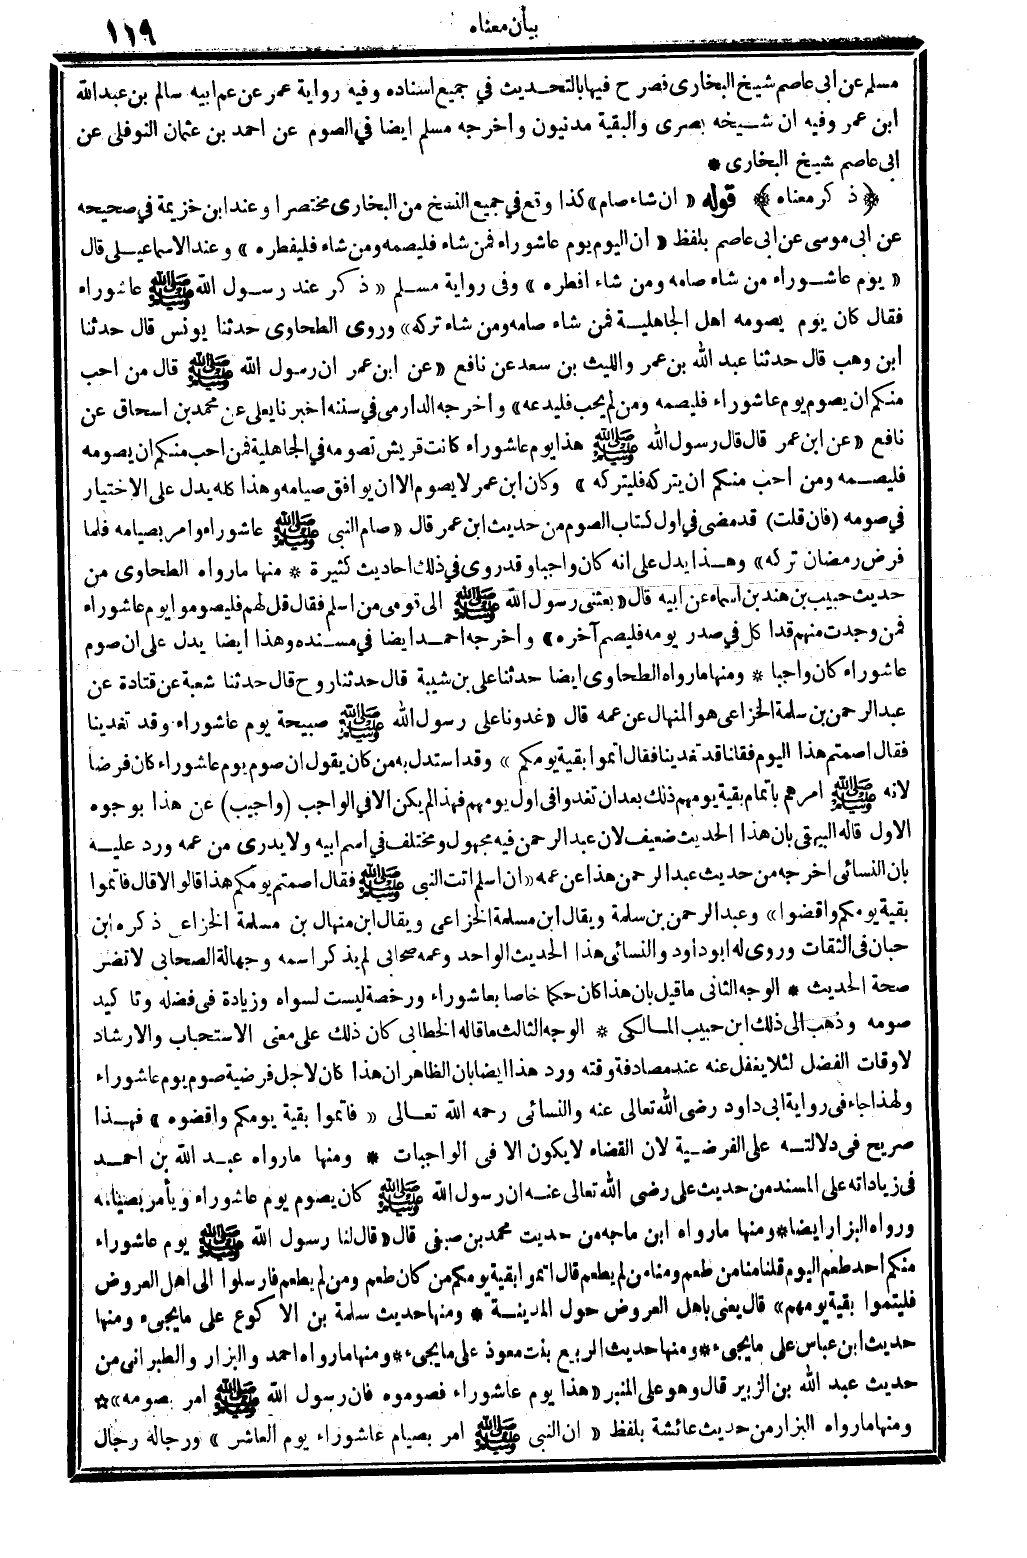 بيان معناه
١١٩
مسلم عن ابى عاصم شيخ البخارى فصرح فيها بالتحديث في جميع اسناده وفيه رواية عمر عن عم ابيه سالم بن عبد الله
ابن عمر وفيه ان شيخه بصرى والبقية مدنيون وأخرجه مسلم ايضا في الصوم عن احمد بن عثمان النوفلى عن
ابى عاصم شيخ البخارى *
﴿ ذكر معناه ﴾ * قوله « ان شاء صام » كذا وقع في جميع النسخ من البخارى مختصرا وعند ابن خزيمة في صحيحه
عن ابى موسى عن ابى عاصم بلفظ « ان اليوم يوم عاشوراء فمن شاء فليصمه ومن شاء فليفطره » وعند الاسماعيلى قال
« يوم عاشوراء من شاء صامه ومن شاء افطره » وفى رواية مسلم « ذكر عند رسول الله ﷺ عاشوراء
فقال كان يوم يصومه اهل الجاهلية فمن شاء صامه ومن شاء تركه » وروى الطحاوى حدثنا يونس قال حدثنا
ابن وهب قال حدثنا عبد الله بن عمر والليث بن سعد عن نافع « عن ابن عمر ان رسول الله ﷺ قال من احب
منكم ان يصوم يوم عاشوراء فليصمه ومن لم يحب فليدعه » واخرجه الدارمى في سننه اخبرنا يعلى عن محمد بن اسحاق عن
نافع « عن ابن عمر قال قال رسول الله ﷺ هذا يوم عاشوراء كانت قريش تصومه في الجاهلية فمن احب منكم ان يصومه
فليصمه ومن احب منكم ان يتركه فليتركه » وكان ابن عمر لا يصوم الا ان يوافق صيامه وهذا كله يدل على الاختيار
في صومه (فان قلت) قد مضى في اول كتاب الصوم من حديث ابن عمر قال « صام النبى ﷺ عاشوراء وامر بصيامه فلما
فرض رمضان تركه » وهذا يدل على انه كان واجبا وقد روى في ذلك احاديث كثيرة * منها ما رواه الطحاوى من
حديث حبيب بن هند بن اسماء عن ابيه قال « بعثنى رسول الله ﷺ الى قومى من اسلم فقال قل لهم فليصوموا يوم عاشوراء
فمن وجدت منهم قد اكل في صدر يومه فليصم آخره » واخرجه احمد ايضا في مسنده وهذا ايضا يدل على ان صوم
عاشوراء كان واجبا * ومنها ما رواه الطحاوى ايضا حدثنا على بن شيبة قال حدثنا روح قال حدثنا شعبة عن قتادة عن
عبد الرحمن بن سلمة الخزاعى هو المنهال عن عمه قال « غدونا على رسول الله ﷺ صبيحة يوم عاشوراء وقد تغدينا
فقال اصمتم هذا اليوم فقلنا قد تغدينا فقال اتموا بقية يومكم » وقد استدل به من كان يقول ان صوم يوم عاشوراء كان فرضا
لانه ﷺ امرهم باتمام بقية يومهم ذلك بعد ان تغدوا فى اول يومهم فهذا لم يكن الا في الواجب (واجيب) عن هذا بوجوه
الاول قاله البيهقى بان هذا الحديث ضعيف لان عبد الرحمن فيه مجهول ومختلف في اسم ابيه ولا يدرى من عمه ورد عليه
بان النسائى اخرجه من حديث عبد الرحمن هذا عن عمه « ان اسلم اتت النبى ﷺ فقال اصمتم يومكم هذا قالوا لا قال فاتموا
بقية يومكم واقضوا » وعبد الرحمن بن سلمة ويقال ابن مسلمة الخزاعى ويقال ابن منهال بن مسلمة الخزاعى ذكره ابن
حبان فى الثقات وروى له ابو داود والنسائى هذا الحديث الواحد وعمه صحابى لم يذكر اسمه وجهالة الصحابى لا تضر
صحة الحديث * الوجه الثانى ما قيل بان هذا كان حكما خاصا بعاشوراء ورخصة ليست لسواه وزيادة فى فضله وتاكيد
صومه وذهب الى ذلك ابن حبيب المالكى * الوجه الثالث ما قاله الخطابى كان ذلك على معنى الاستحباب والارشاد
لاوقات الفضل لئلا يغفل عنه عند مصادفة وقته ورد هذا ايضا بان الظاهر ان هذا كان لاجل فرضية صوم يوم عاشوراء
ولهذا جاء فى رواية ابى داود رضى الله تعالى عنه والنسائى رحمه الله تعالى « فاتموا بقية يومكم واقضوه » فهذا
صريح فى دلالته على الفرضية لان القضاء لا يكون الا فى الواجبات * ومنها ما رواه عبد الله بن احمد
فى زياداته على المسند من حديث على رضى الله تعالى عنه ان رسول الله ﷺ كان يصوم يوم عاشوراء ويأمر بصيامه
ورواه البزار ايضا * ومنها ما رواه ابن ماجه من حديث محمد بن صيفى قال « قال لنا رسول الله ﷺ يوم عاشوراء
منكم احد طعم اليوم قلنا منا من طعم ومنا من لم يطعم قال اتموا بقية يومكم من كان طعم ومن لم يطعم فارسلوا الى اهل العروض
فليتموا بقية يومهم » قال يعنى باهل العروض حول المدينة * ومنها حديث سلمة بن الاكوع على ما يجىء ومنها
حديث ابن عباس على ما يجىء * ومنها حديث الربيع بنت معوذ على ما يجىء * ومنها ما رواه احمد والبزار والطبرانى من
حديث عبد الله بن الزبير قال وهو على المنبر « هذا يوم عاشوراء فصوموه فان رسول الله ﷺ امر بصومه » *
ومنها ما رواه البزار من حديث عائشة بلفظ « ان النبى ﷺ امر بصيام عاشوراء يوم العاشر » ورجاله رجال